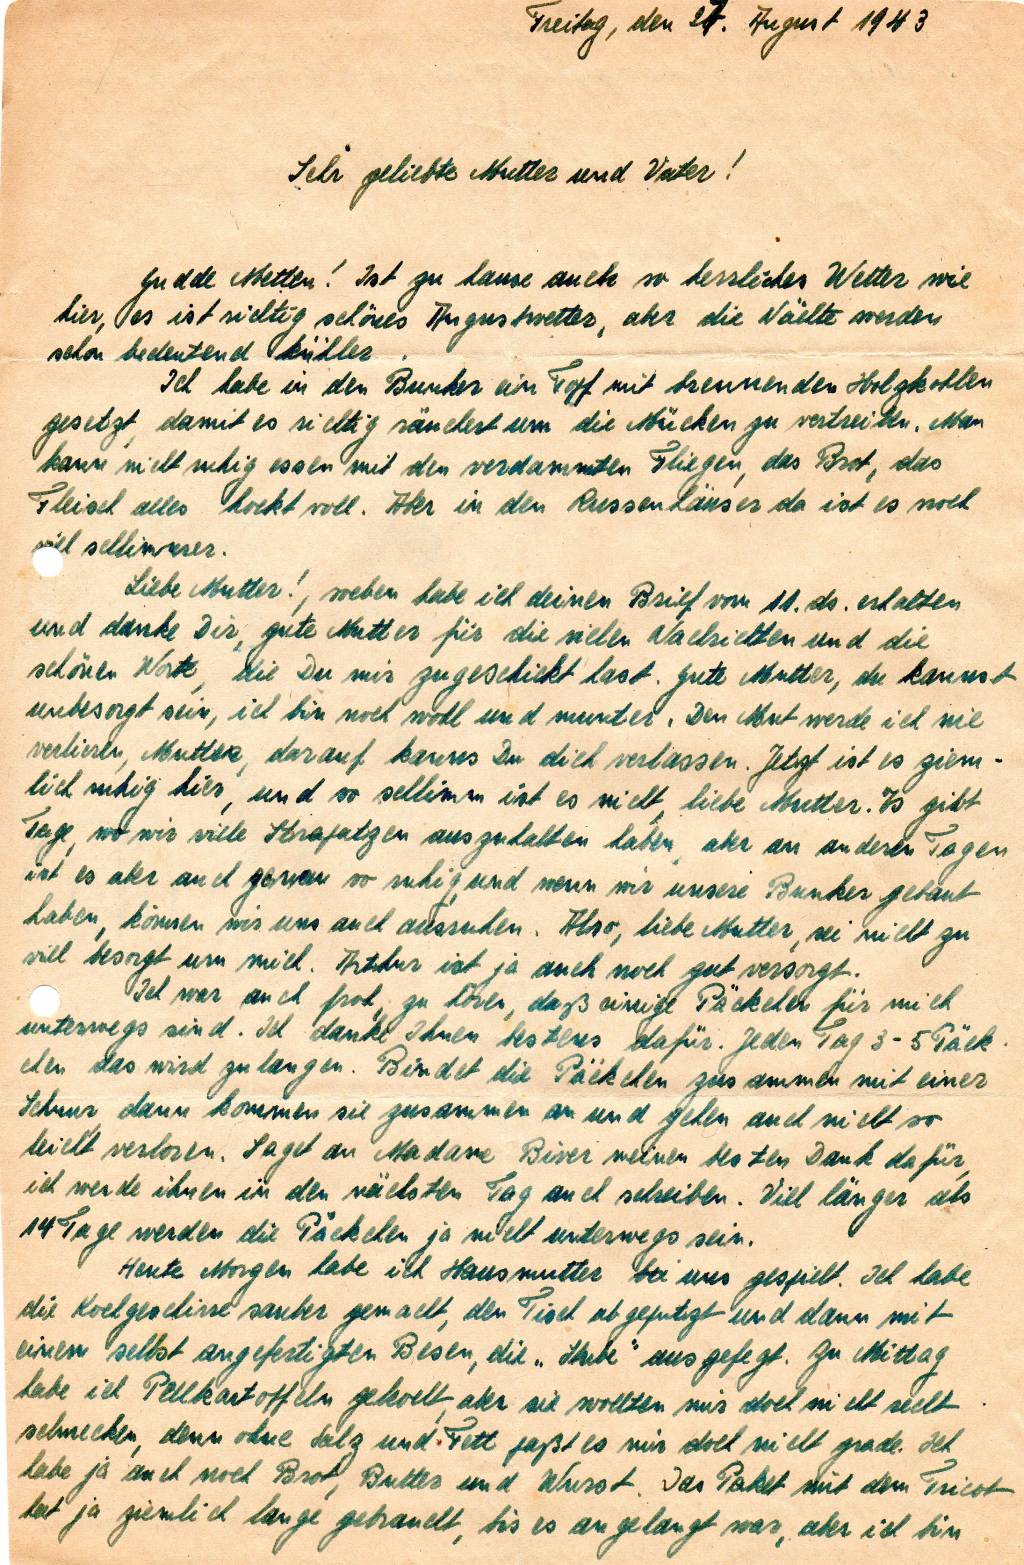 Freitag, den 27. August 1943
Sehr geliebte Mutter und Vater!
Gudde Metten! Ist zu hause auch so herrliches Wetter wie
hier, es ist richtig schönes Augustwetter, aber die Nächte werden
schon bedeutend kühler.
Ich habe in den Bunker ein Topf mit brennenden Holzkohlen
gesetzt, damit es richtig räuchert um die Mücken zu vertreiben. Man
kann nicht ruhig essen mit den verdammten Fliegen, das Brot, das
Fleisch alles hockt voll. Aber in den Russenhäuser da ist es noch
viel schlimmer.
Liebe Mutter!, soeben habe ich deinen Brief vom 11. ds. erhalten
und danke Dir, gute Mutter für die vielen Nachrichten und die
schönen Worte, die Du mir zugeschickt hast. Gute Mutter, du kannst
unbesorgt sein, ich bin noch wohl und munter. Den Mut werde ich nie
verlieren, Mutter, darauf kanns Du dich verlassen. Jetzt ist es ziem-
lich ruhig hier, und so schlimm ist es nicht, liebe Mutter. Es gibt
Tage, wo wir viele Strapatzen auszuhalten haben, aber an anderen Tagen
ist es aber auch so ruhig, und wenn wir unsere Bunker gebaut
haben, können wir uns auch ausruhen. Also, liebe Mutter, sei nicht zu
viel besorgt um mich. Arthur ist ja auch noch gut versorgt.
Ich war auch froh, zu hören, daß einige Päckelen für mich
unterwegs sind. Ich danke Ihnen bestens dafür. Jeden Tag 3-5 Päck-
chen das wird zu langen. Bindet die Päckchen zusammen mit einer
Schnur, dann kommen sie zusammen an und gehen auch nicht so
leicht verloren. Saget an Madame Biver meinen besten Dank dafür,
ich werde ihnen in den nächsten Tag auch schreiben. Viel länger als
14 Tage werden die Päckchen ja nicht unterwegs sein.
Heute Morgen habe ich Hausmutter bei uns gespielt. Ich habe
die Kochgeschirre sauber gemacht, den Tisch abgeputzt und dann mit
einem selbst angefertigten Besen, die „Stube" ausgefegt. Zu Mittag
habe ich Pellkartoffeln gekocht, aber sie wollten mir doch nicht recht
schmecken, denn ohne Salz und Fett paßt es mir doch nicht grade. Ich
habe ja auch noch Brot, Butter und Wurst. Das Paket mit dem Tricot
hat ja ziemlich lange gebraucht, bis es angelangt war, aber ich bin